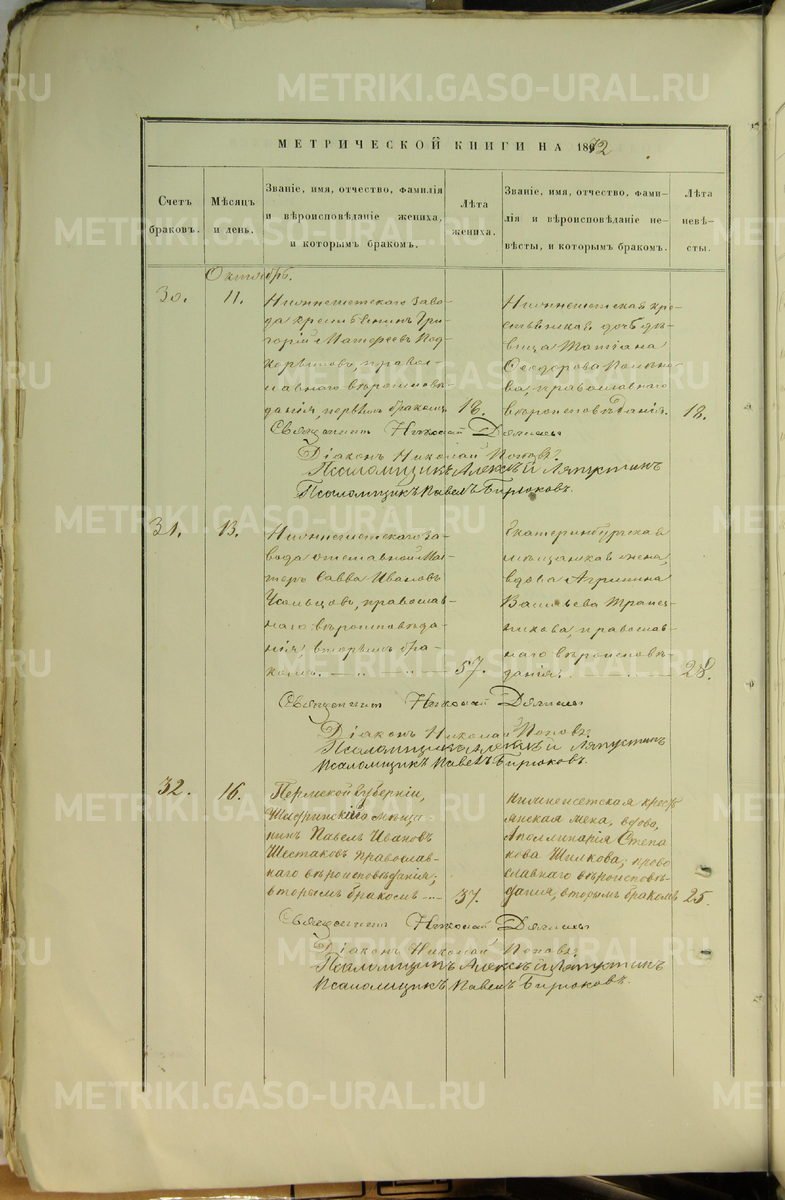 METRIKI.GASO-URAL.RU
МЕТРИЧЕСКОЙ КНИГИ НА 1892
Счетъ браковъ.
Мѣсяцъ и день.
Званіе, имя, отчество, фамилія
и вѣроисповѣданіе жениха,
и которымъ бракомъ.
Лѣта жениха.
Званіе, имя, отчество, фами-
лія и вѣроисповѣданіе не-
вѣсты, и которымъ бракомъ.
Лѣта невѣ-
сты.
Октябрь.
30.
11.
Нижнеисетскаго заво-
да крестьянинъ Гри-
горій Матвеевъ Под-
правос-
лавнаго вѣроисповѣ-
данія, первымъ бракомъ
18.
Нижнеисетская кре-
стьянская дочь дѣ-
вица Татіана
Ѳеодорова
православнаго
вѣроисповѣданія.
18.
Священникъ Николай
Діаконъ Николай Поповъ.
Псаломщикъ Алексѣй Ляпустинъ
Псаломщикъ Павелъ Бирюковъ.
31.
13.
Нижнеисетскаго за-
вода отставной Мас-
теръ Савва Ивановъ
Усольцовъ, православ-
наго вѣроисповѣда-
нія, вторымъ бра-
комъ.
57.
Екатеринбургская
мѣщанская жена,
вдова Агрипина
Васильева Трапез-
никова, православ-
наго вѣроисповѣ-
данія.
28.
Священникъ Николай
Діаконъ Николай Поповъ.
Псаломщикъ Алексѣй Ляпустинъ
Псаломщикъ Павелъ Бирюковъ.
32.
16.
Пермской губерніи,
Шадринскій мѣща-
нинъ Павелъ Ивановъ
Шестаковъ православ-
наго вѣроисповѣданія;
вторымъ бракомъ
37.
Нижнеисетская кресть
янская жена, вдова,
Аполлинарія Степа
нова Шилкова; право
славнаго вѣроисповѣ-
данія, вторымъ бракомъ
25.
Священникъ Николай
Діаконъ Николай Поповъ.
Псаломщикъ Алексѣй Ляпустинъ
Псаломщикъ Павелъ Бирюковъ.